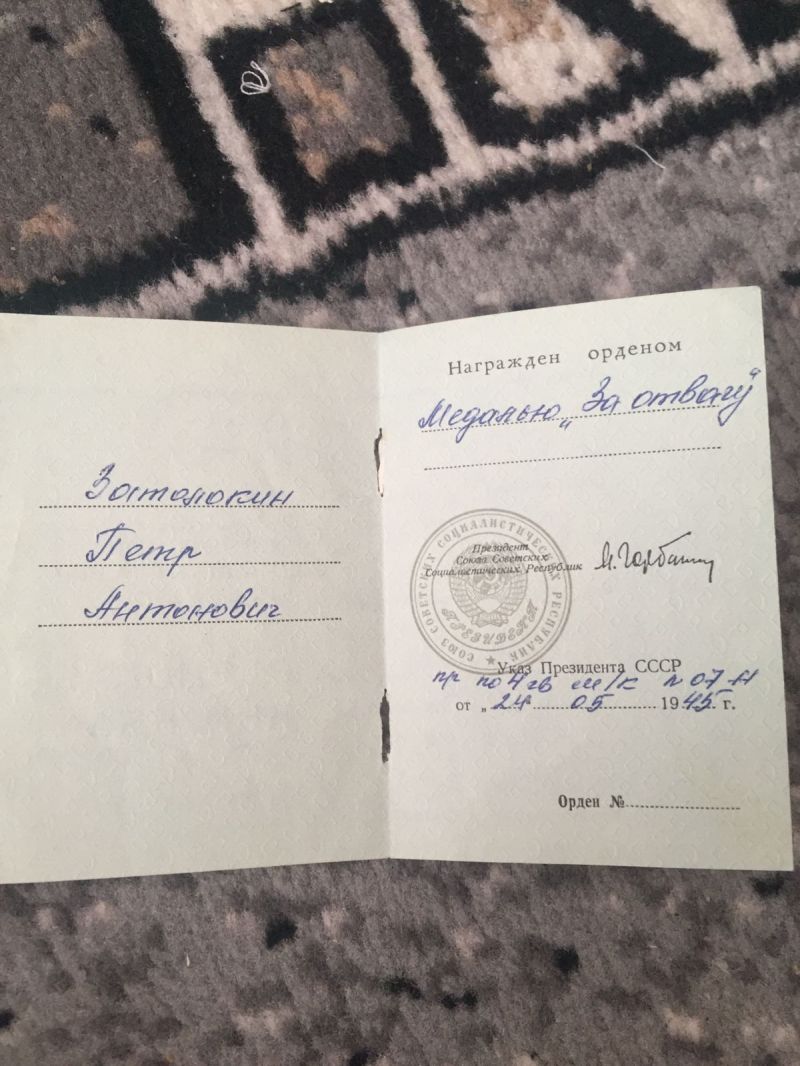 Затолокин
Петр
Антонович
Награжден орденом
Медалью „За отвагу"
СОЮЗ СОВЕТСКИХ СОЦИАЛИСТИЧЕСКИХ РЕСПУБЛИК
ПРЕЗИДЕНТ
Президент
Союза Советских
Социалистических Республик
М. Горбачев
Указ Президента СССР
пр по 4 гв м/к № 07-Н
от „ 24 05 1945 г.
Орден №